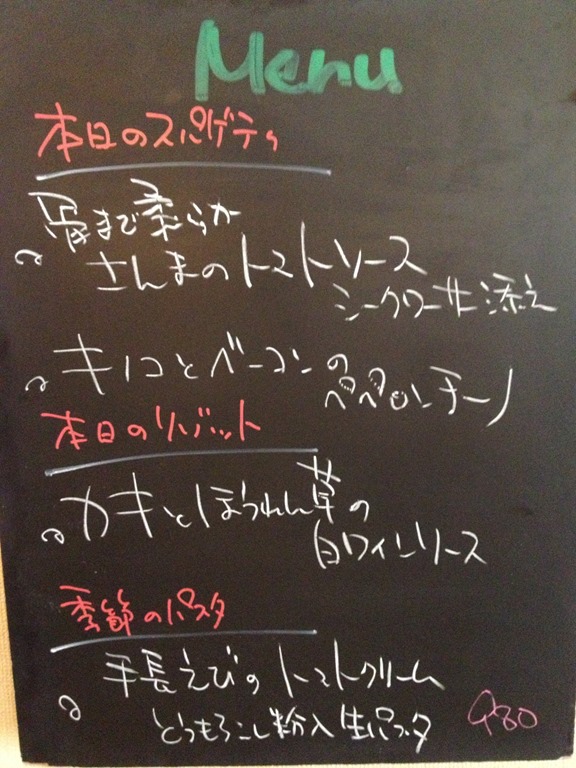 Menu
本日のスパゲティ
骨まで柔らか
さんまのトマトソース
シークワーサ添え
キノコとベーコンの
ペペロンチーノ
本日のリゾット
カキとほうれん草の
白ワインソース
季節のパスタ
手長えびのトマトクリーム
とうもろこし粉入生パスタ
980